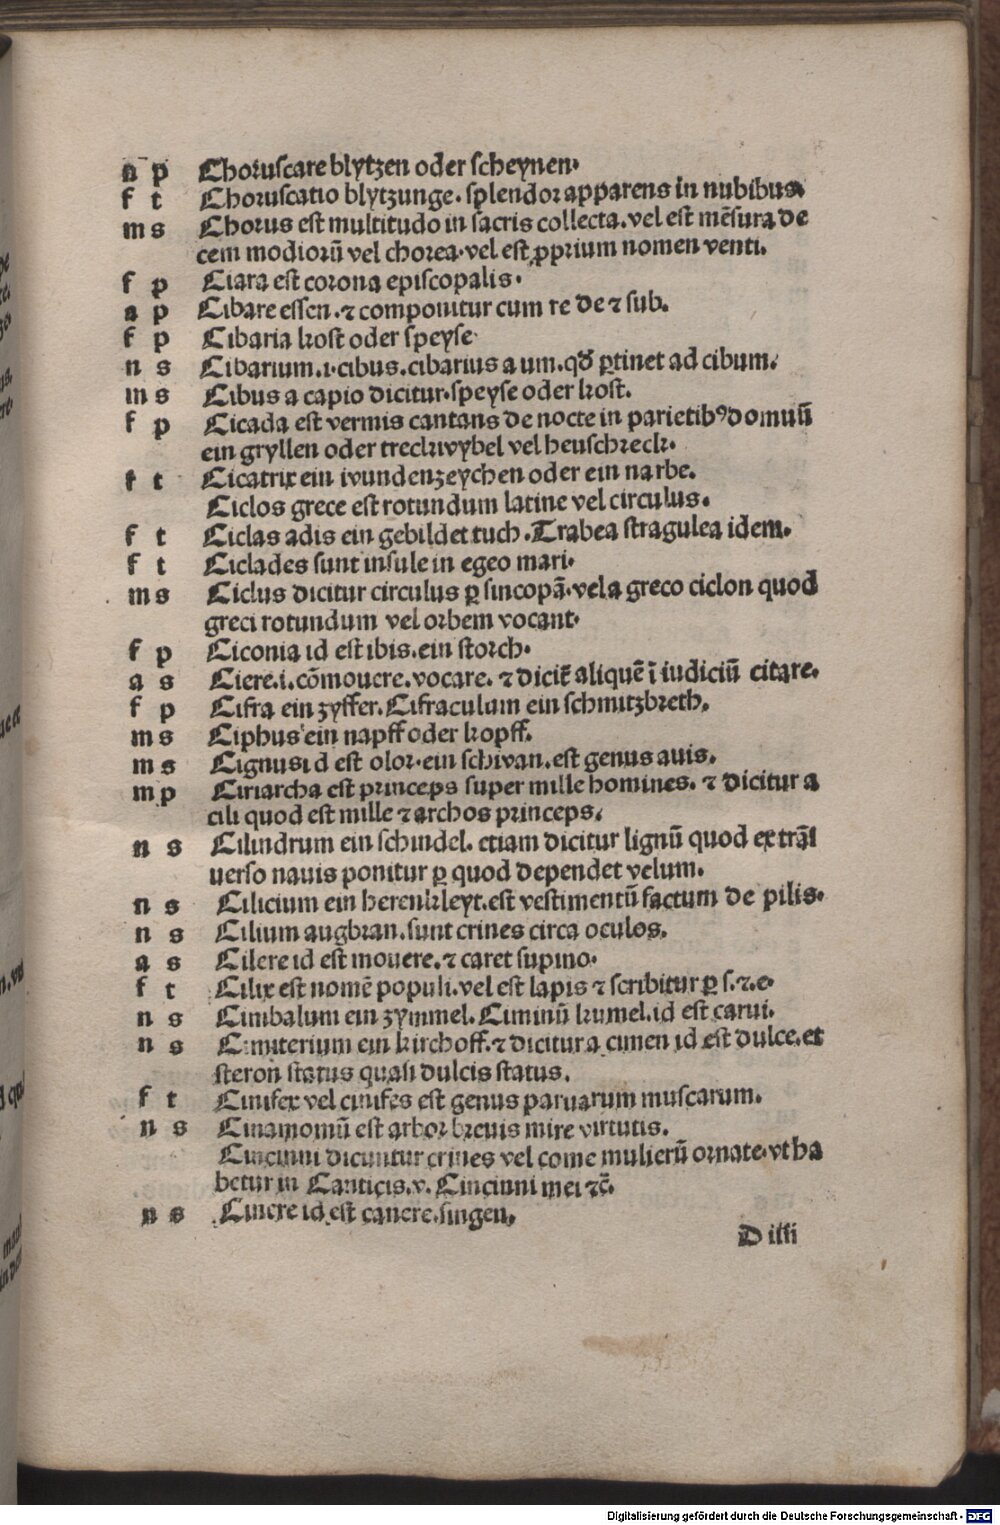 n p Choruſcare blytzen oder ſcheynen·
f t Choruſcatio blytzunge. ſplendor apparens in nubibus.
m s Chorus eſt multitudo in ſacris collecta. vel eſt mēſura de
cem modiorū vel chorea. vel eſt ꝓprium nomen venti.
f p Ciara eſt corona epiſcopalis·
a p Cibare eſſen. ⁊ componitur cum re de ⁊ ſub.
f p Cibaria koſt oder ſpeyſe
n s Cibarium. i. cibus. cibarius a um. qđ ꝑtinet ad cibum.
m s Cibus a capio dicitur. ſpeyſe oder koſt.
f p Cicada eſt vermis cantans de nocte in parietibꝰ domuū
ein gryllen oder treckwybel vel heuſchreck.
f t Cicatrix ein wundenzeychen oder ein narbe.
Ciclos grece eſt rotundum latine vel circulus.
f t Ciclas adis ein gebildet tuch. Trabea ſtragulea idem.
f t Ciclades ſunt inſule in egeo mari·
m s Ciclus dicitur circulus ꝑ ſincopā. vel a greco ciclon quod
greci rotundum vel orbem vocant·
f p Ciconia id eſt ibis. ein ſtorch.
a s Ciere. i. cōmouere. vocare. ⁊ dicit̄ aliquē ī iudiciū citare.
f p Cifra ein zyffer. Cifraculum ein ſchmitzbreth.
m s Ciphus ein napff oder kopff.
m s Cignus id eſt olor. ein ſchwan. eſt genus auis.
m p Ciriarcha eſt princeps ſuper mille homines. ⁊ dicitur a
cili quod eſt mille ⁊ archos princeps.
n s Cilindrum ein ſchindel. etiam dicitur lignū quod ex trāſ
uerſo nauis ponitur ꝑ quod dependet velum.
n s Cilicium ein herenkleyt. eſt veſtimentū factum de pilis·
n s Cilium augbran. ſunt crines circa oculos.
a s Cilere id eſt mouere. ⁊ caret ſupino·
f t Cilix eſt nomē populi. vel eſt lapis ⁊ ſcribitur ꝑ ſ. ⁊. e·
n s Cimbalum ein zymmel. Ciminū kumel. id eſt carui.
n s Cimiterium ein kirchoff. ⁊ dicitur a cimen id eſt dulce. et
ſteron ſtatus quaſi dulcis ſtatus.
f t Cinifex vel cinifes eſt genus paruarum muſcarum.
n s Cinamomū eſt arbor breuis mire virtutis.
Cincinni dicuntur crines vel come mulierū ornate. vt ha
betur in Canticis. v. Cincinni mei ⁊c̄.
n s Cinere id eſt canere. ſingen.
D iiii
Digitalisierung gefördert durch die Deutsche Forschungsgemeinschaft - DFG